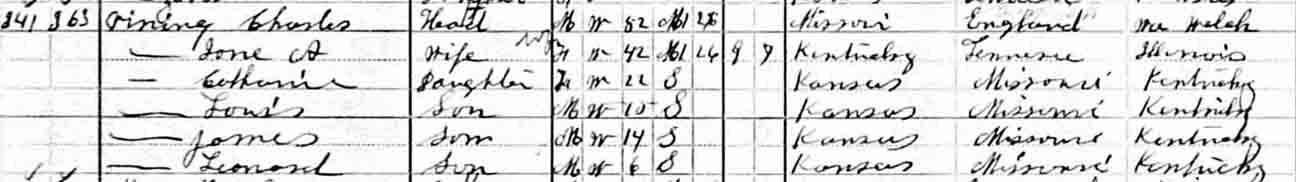 341 363 Vining Charles Head M W 52 M1 26 Missouri England Welch
— Ione A Wife F W 42 M1 26 9 7 Kentucky Tennessee Illinois
— Catharine Daughter F W 22 S Kansas Missouri Kentucky
— Louis Son M W 15 S Kansas Missouri Kentucky
— James Son M W 14 S Kansas Missouri Kentucky
— Leonard Son M W 6 S Kansas Missouri Kentucky